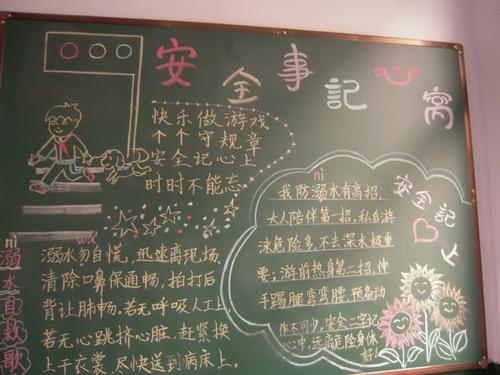 安全事記心窝
快乐做游戏
个个守规章
安全记心上
时时不能忘
ni
溺水自救歌
wu
溺水勿自慌，迅速离现场，
清除口鼻保通畅，拍打后
背让肺畅。若无呼吸人工上
若无心跳挤心脏，赶紧换
上干衣裳，尽快送到病床上。
安全记心上
ni
我防溺水有高招，
大人陪伴第一招，私自游
泳危险多，不去深水极重
要；游前热身第二招，伸
手踢腿弯弯腰，预备动
作不可少，安全二字记
心中，远离危险身体
好！